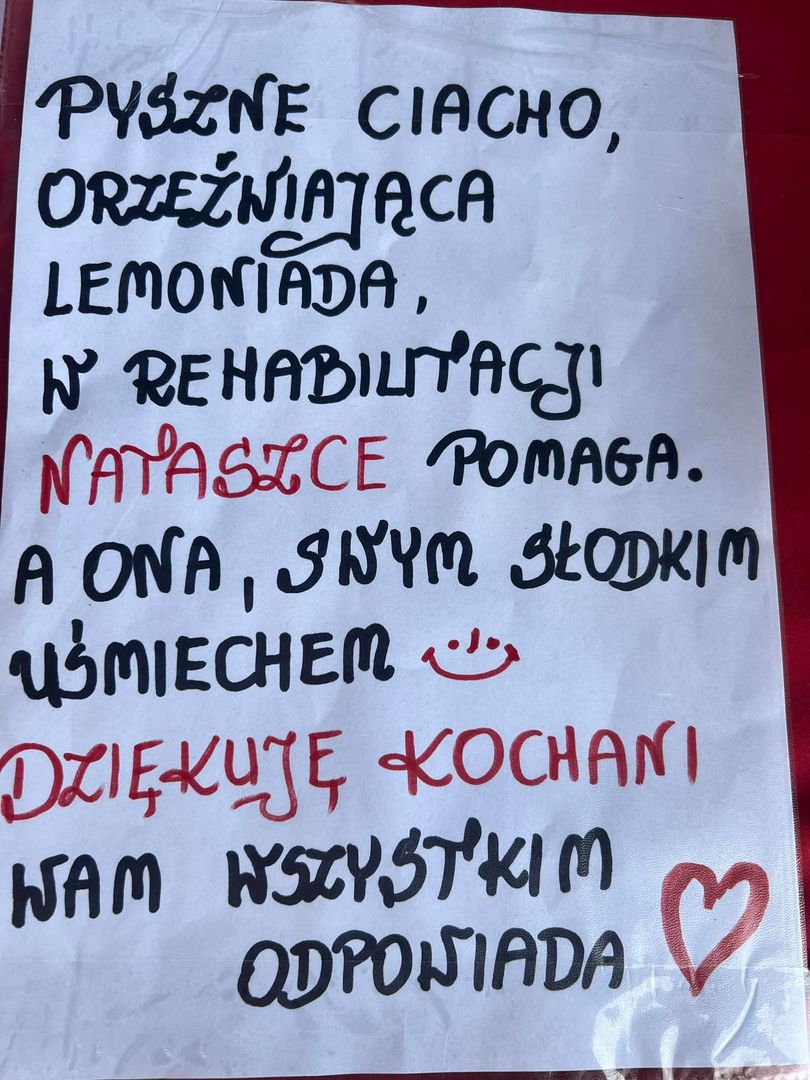 PYSZNE CIACHO,
ORZEŹWIAJĄCA
LEMONIADA,
W REHABILITACJI
NATASZCE POMAGA.
A ONA, SWYM SŁODKIM
UŚMIECHEM
DZIĘKUJĘ KOCHANI
WAM WSZYSTKIM
ODPOWIADA